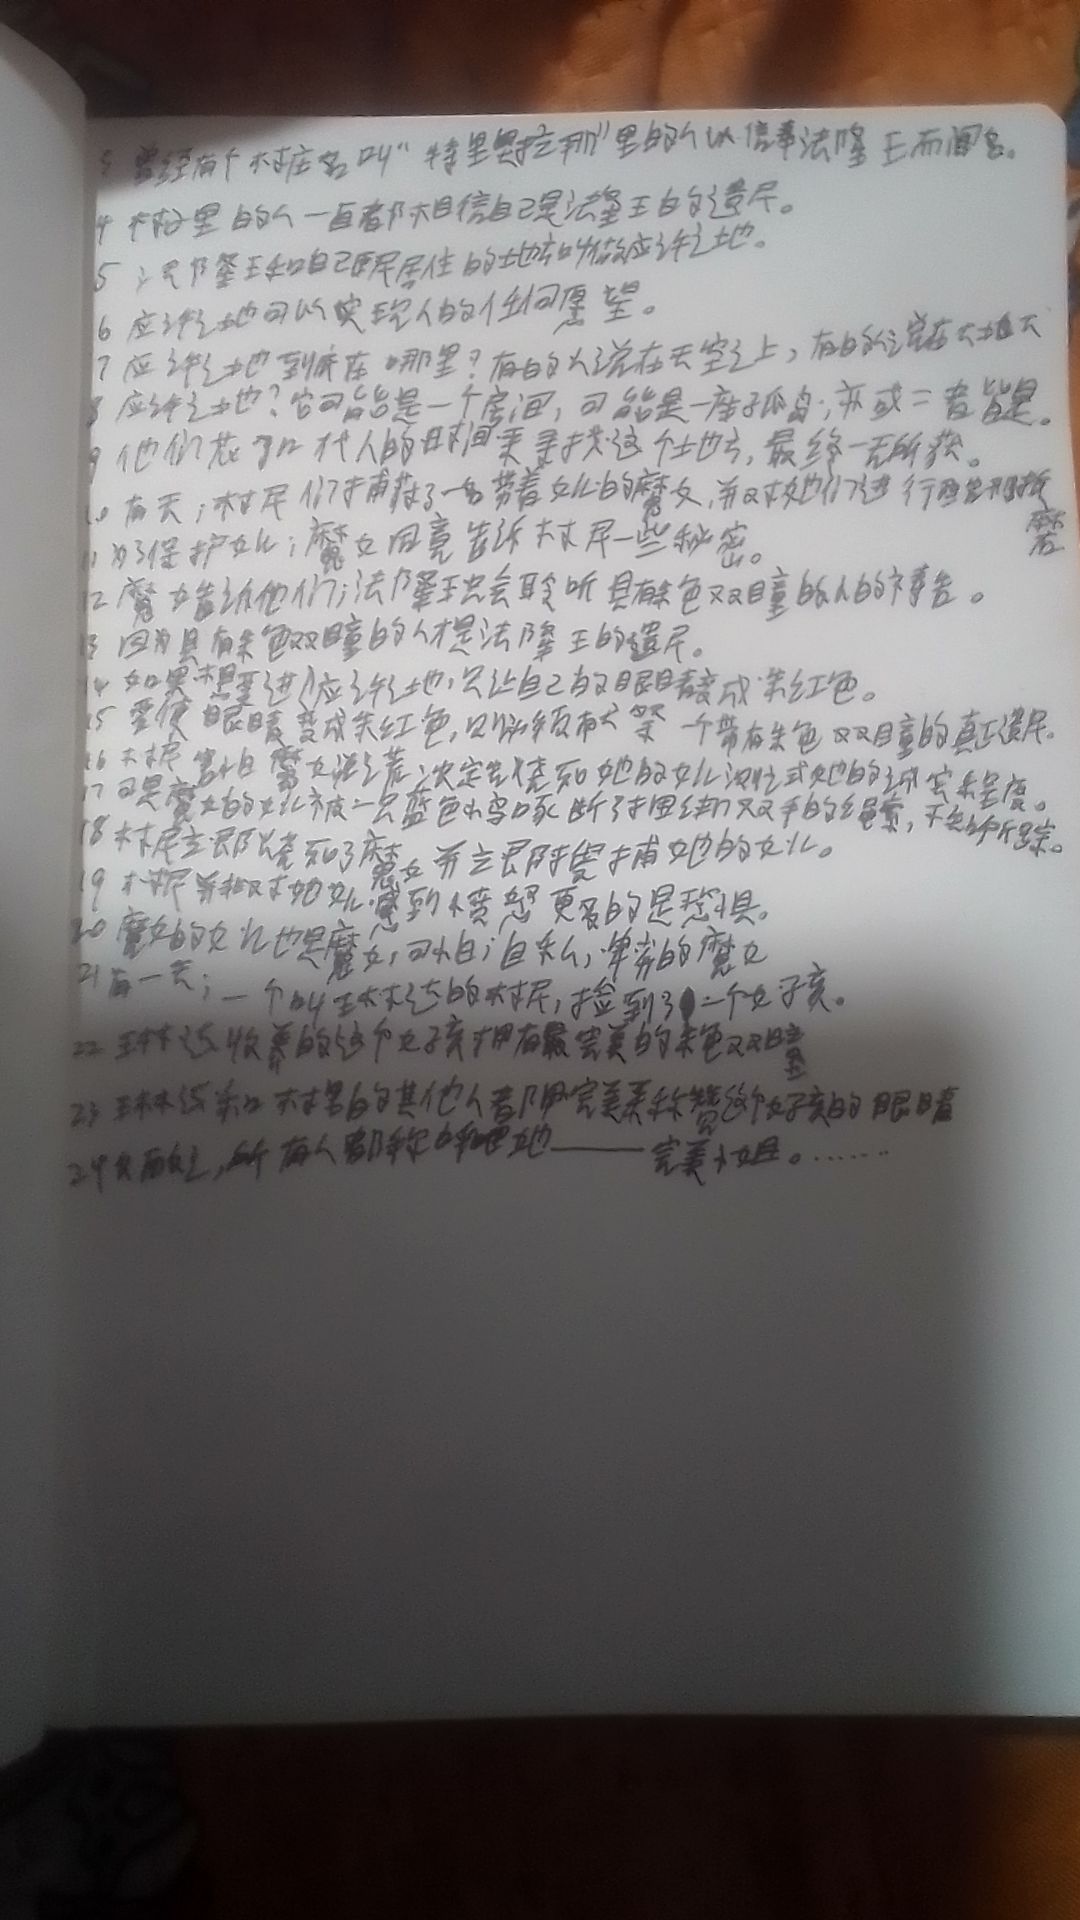 曾经有个村庄名叫“特里奥拉那”里的人以信奉法隆王而闻名。
4 村子里的人一直都相信自己是法隆王的遗民。
5 法隆王和自己臣民居住的土地叫做应许之地。
6 应许之地可以实现人的任何愿望。
7 应许之地到底在哪里?有的人说在天空之上,有的人说在大地
8 应许之地?它可能是一个房间,可能是一座孤岛,亦或二者皆是。
9 他们花了几代人的时间来寻找这个土地,最终一无所获。
10 有天;村民们捕获了一名带着女儿的魔女,并对她们进行折磨
11 为了保护女儿;魔女同意告诉村民一些秘密。
12 魔女告诉他们;法隆王只会聆听具有朱色双瞳的人的祷告。
13 因为具有朱色双瞳的人才是法隆王的遗民。
14 如果想要进入应许之地,只让自己的眼睛变成朱红色。
15 要使眼睛变成朱红色,只必须有祭一个带有朱色双瞳的真正遗民。
16 村民害怕魔女说谎;决定先烧死她的女儿测试她的诚实程度。
17 可是魔女的女儿被一只蓝色小鸟啄断了捆绑双手的绳索,不知所踪。
18 村民立即烧死了魔女并立即搜捕她的女儿。
19 村民并非对她女儿感到愤怒更多的是恐惧。
20 魔女的女儿也是魔女,可怕;自私;卑劣的魔女
21 有一天;一个叫琳达的村民,捡到了一个女孩。
22 琳达收养的这个女孩拥有最完美的朱色双瞳
23 琳达和村里的其他人都用完美来称赞这个女孩的眼睛
24 久而久之,所有人都称呼她——完美小姐。……